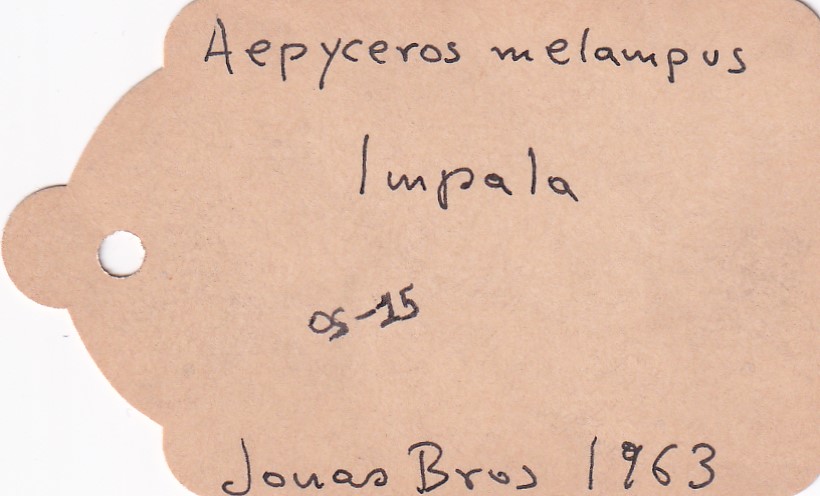 Aepyceros melampus
Impala
OS-15
Jonas Bros 1963